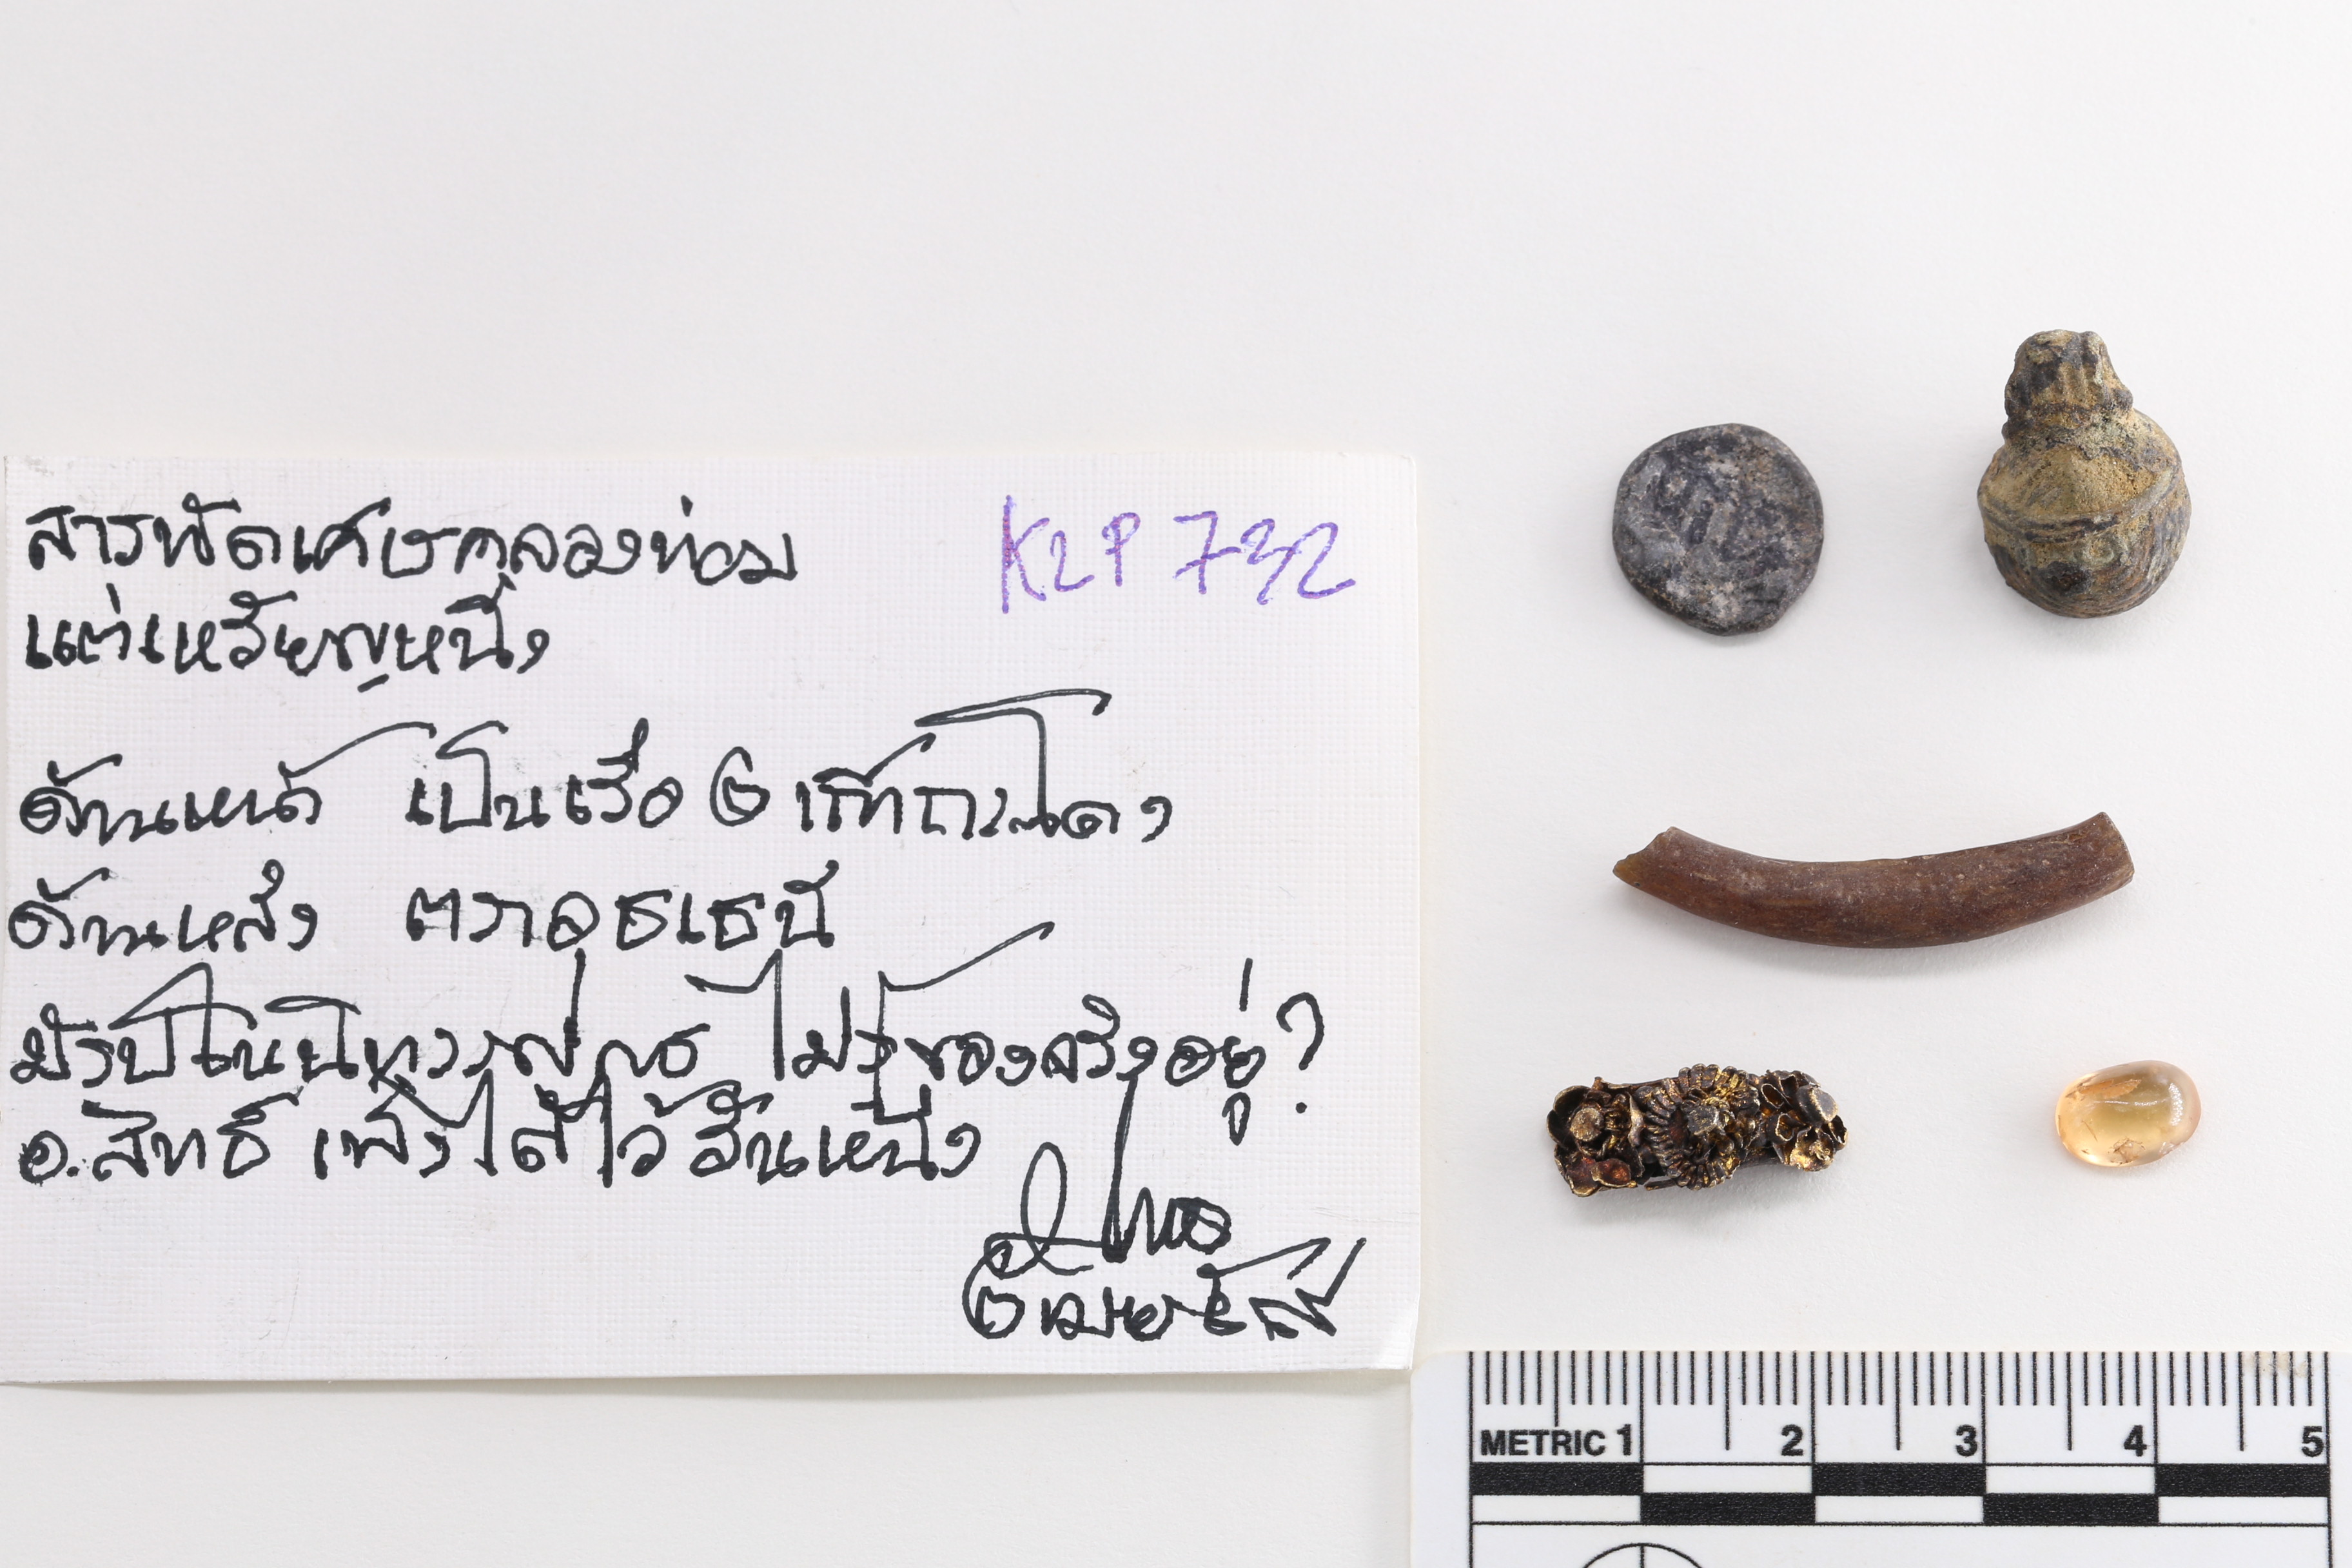 สารพัดเศษคลองท่อม KLP 732
แต่เหรียญหนึ่ง
ด้านหน้า เป็นเรือ ๒ เสากระโดง
ด้านหลัง ตราอุชเชนี
มีรูปในนิทรรศการ ไม่รู้ของจริงอยู่?
อ. สิทธิ์ เพิ่งได้ไว้อันหนึ่ง
๒ เมษา
METRIC 1 2 3 4 5